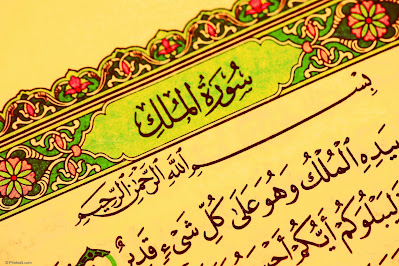 سُورَةُ الْمُلْكِ
بِسْمِ اللَّهِ الرَّحْمَٰنِ الرَّحِيمِ
بِيَدِهِ الْمُلْكُ وَهُوَ عَلَىٰ كُلِّ شَيْءٍ قَدِيرٌ
لِيَبْلُوَكُمْ أَيُّكُمْ أَحْسَنُ